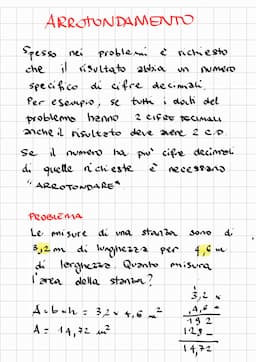 ARROTONDAMENTO
Spesso nei problemi è richiesto
che il risultato abbia un numero
specifico di cifre decimali.
Per esempio, se tutti i dati del
problema hanno 2 CIFRE DECIMALI
anche il risultato deve avere 2 C.D.
Se il numero ha piu' cifre decimali
di quelle richieste è necessario
"ARROTONDARE"
PROBLEMA
Le misure di una stanza sono di
3,2 m di lunghezza per 4,6 m
di larghezza. Quanto misura
l'area della stanza?
A = b × h = 3,2 × 4,6 m²
A = 14,72 m²
1
3,2 ×
4,6 =
192
128 -
14,72